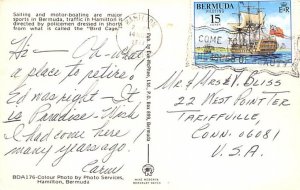 Sailing and motor-boating are major
sports in Bermuda, traffic in Hamilton is
directed by policemen dressed in shorts
from what is called the "Bird Cage."
Hi - Oh - what
a place to retire.
Ed was right - It is
a Paradise. Wish
I had come here
many years ago.
Carm
BDA176-Colour Photo by Photo Services,
Hamilton, Bermuda
BERMUDA
15
COME TO
Mr & Mrs V. Bliss
22 West Pointer
Tariffville,
Conn. 06081
U.S.A.